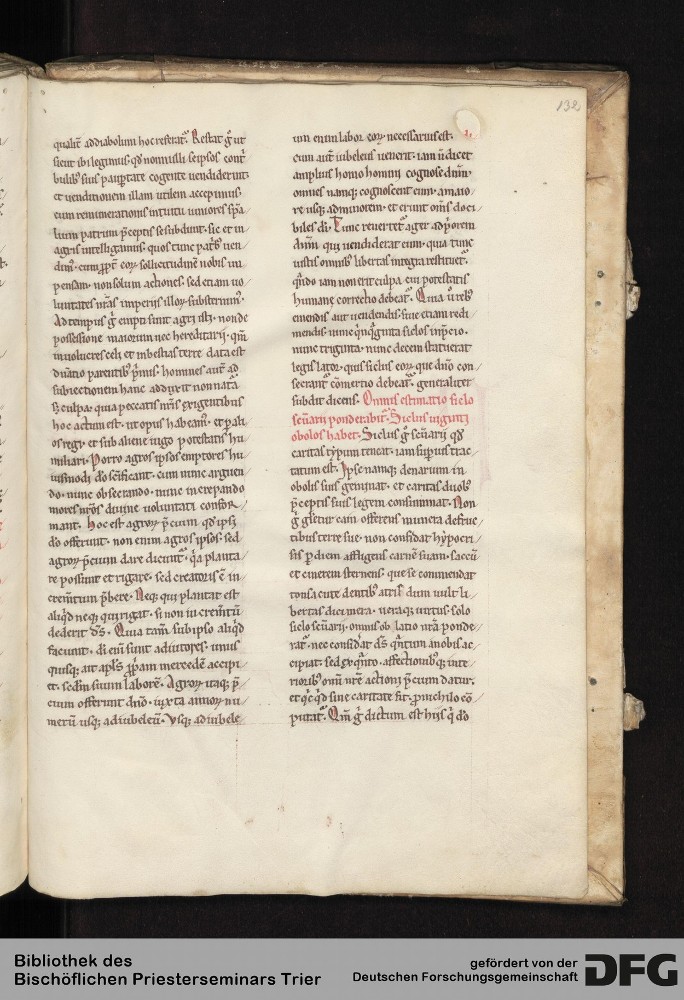 132
qualit̄ ad diabolum hoc referat᷑. Restat ḡ ut
sicut ibi legimus qd̄ nonnulli seipsos cont̄
bulib᷒ suis paup̄tate cogente uendiderunt
et uenditionem illam utilem accepimus
cum remunerationis intuitu iuniores sp̄a
lium patrum p̄ceptis se subdunt. sic et in
agris intelligamus. quos tunc patrib᷒ uen
dim᷒. cum ꝓpt̄ eoꝝ sollicitudinē nobis im
pensam. non solum actiones. sed etiam uo
luntates nr̄as imperijs illoꝝ substernim᷒.
Ad tempus ḡ empti sunt agri isti. non de
possessione maioꝝ nec hereditarij. qm̄
in uolucres celi et in bestias terre data est
d̄natio parentib᷒ p̄mis. homines aut̄ ad
subiectionem hanc adduxit non natā
sꝫ culpa. quia peccatis nr̄is exigentibus
hoc actum est. ut opus habeam᷒. et p̄lati
os regi. et sub alieno iugo potestatis hu
miliari. Porro agros ipsos emptores hu
iusmodi dō sc̄ificant. cum nunc arguen
do. nunc obsecrando. nunc increpando
mores nr̄os diuine uoluntati confor
mant. hoc est agroꝝ p̄cium qd̄ ipsi
dō offerunt. non enim agros ipsos. sed
agroꝝ p̄cium dare dicunt᷑. q̄a planta
re possunt et rigare. sed creatoris ē in
crem̄tum p̄bere. Neqꝫ qui plantat est
aliqd̄ neqꝫ qui rigat. si non increm̄tū
dederit dš. Quia tam̄ sub ipso aliqd̄
faciunt. di enī sunt adiutores. unus
quisqꝫ ait apl̄s ꝓpām mercedē accipi
et. scd̄m suum laborē. Agroꝝ itaqꝫ p̄
cium offerunt dnō. iuxta annoꝝ nu
merū usqꝫ ad iubeleū. Vsqꝫ ad iubele
um enim labor eoꝝ necessarius est.
cum aut̄ iubeleus uenerit. iam n̄ dicet
amplius homo homini cognosce dnm̄.
omnes namqꝫ cognoscent eum. a maio
re usqꝫ ad minorem. et erunt om̄s doci
biles dī. Tunc reuertet᷑ ager ad p̄orem
dnm̄. qui uendiderat eum. quia tunc
iustis omnib᷒ libertas integra restituet᷑.
qn̄do iam non erit culpa. cui potestatis
humane correctio debeat᷑. Quia u̾ reb᷒
emendis aut uendendis. siue etiam redi
mendis. nunc qn̄quaginta siclos in p̄cio.
nunc triginta. nunc decem statuerat
legislator. quis siclus eoꝝ. que dnō con
secrant᷑ cōmertio debeat᷑. generaliter
subdit dicens. Omnis estimatio siclo
sc̄uarij ponderabit᷑. Siclus uiginti
obolos habet. Siclus ḡ sc̄uarij qd̄
caritatis typum teneat. iam sup̄ius trac
tatum est. Ipse namqꝫ denarium in
obolis suis geminat. et caritas duob᷒
p̄ceptis suis legem consummat. Non
ḡ glietur cain offerens munera de fruc
tibus terre sue. non confidat hypocri
sis p̄ diem affligens carnē suam. saccū
et cinerem sternens. que se commendat
tonsa cute dentib᷒ atris dum uult li
bertas dici mera. ueraqꝫ uirtus. solo
siclo sc̄uarij. omnis oblatio nr̄a ponde
rat᷑. nec considat dš qn̄tum a nobis ac
cipiat. sed ex qn̄to. affectionib᷒qꝫ inte
riorib᷒ om̄i nr̄e actioni p̄cium datur.
et qc̄qd̄ sine caritate fit. ꝓ nichilo cō
putat᷑. Qm̄ ḡ dictum est hijs q̄ dō
Bibliothek des
Bischöflichen Priesterseminars Trier
gefördert von der
Deutschen Forschungsgemeinschaft
DFG